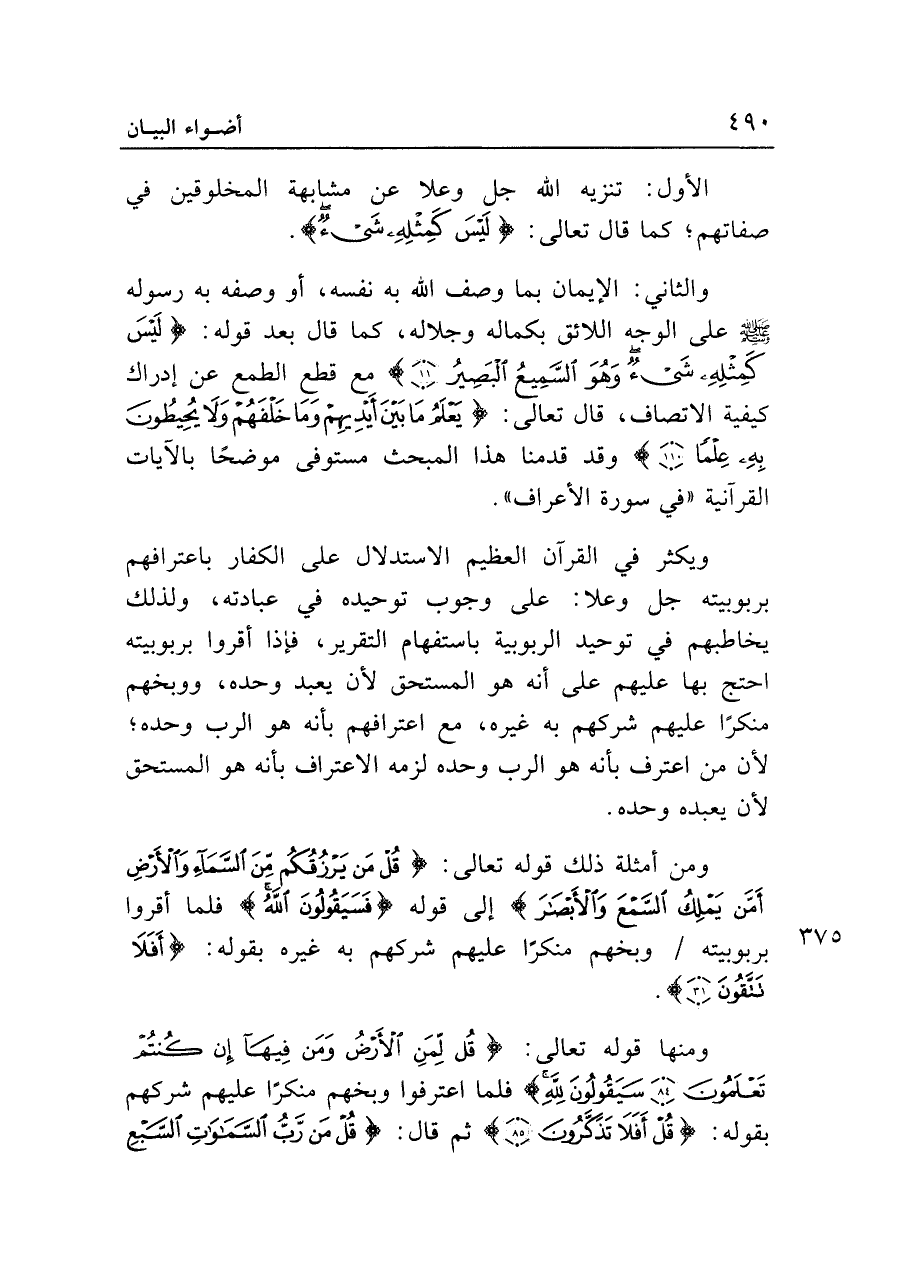 ٤٩٠ أضواء البيان
الأول: تنزيه الله جل وعلا عن مشابهة المخلوقين في
صفاتهم؛ كما قال تعالى: ﴿ لَيْسَ كَمِثْلِهِۦ شَىْءٌۖ﴾.
والثاني: الإيمان بما وصف الله به نفسه، أو وصفه به رسوله
ﷺ على الوجه اللائق بكماله وجلاله، كما قال بعد قوله: ﴿ لَيْسَ
كَمِثْلِهِۦ شَىْءٌۖ وَهُوَ ٱلسَّمِيعُ ٱلْبَصِيرُ ١١﴾ مع قطع الطمع عن إدراك
كيفية الاتصاف، قال تعالى: ﴿ يَعْلَمُ مَا بَيْنَ أَيْدِيهِمْ وَمَا خَلْفَهُمْ وَلَا يُحِيطُونَ
بِهِۦ عِلْمًا ١١٠﴾ وقد قدمنا هذا المبحث مستوفى موضحًا بالآيات
القرآنية «في سورة الأعراف».
ويكثر في القرآن العظيم الاستدلال على الكفار باعترافهم
بربوبيته جل وعلا: على وجوب توحيده في عبادته، ولذلك
يخاطبهم في توحيد الربوبية باستفهام التقرير، فإذا أقروا بربوبيته
احتج بها عليهم على أنه هو المستحق لأن يعبد وحده، ووبخهم
منكرًا عليهم شركهم به غيره، مع اعترافهم بأنه هو الرب وحده؛
لأن من اعترف بأنه هو الرب وحده لزمه الاعتراف بأنه هو المستحق
لأن يعبده وحده.
ومن أمثلة ذلك قوله تعالى: ﴿ قُلْ مَن يَرْزُقُكُم مِّنَ ٱلسَّمَآءِ وَٱلْأَرْضِ
أَمَّن يَمْلِكُ ٱلسَّمْعَ وَٱلْأَبْصَٰرَ ﴾ إلى قوله ﴿فَسَيَقُولُونَ ٱللَّهُۚ﴾ فلما أقروا
بربوبيته / وبخهم منكرًا عليهم شركهم به غيره بقوله: ﴿أَفَلَا ٣٧٥
تَتَّقُونَ ٣١﴾.
ومنها قوله تعالى: ﴿ قُل لِّمَنِ ٱلْأَرْضُ وَمَن فِيهَآ إِن كُنتُمْ
تَعْلَمُونَ ٨٤ سَيَقُولُونَ لِلَّهِۚ﴾ فلما اعترفوا وبخهم منكرًا عليهم شركهم
بقوله: ﴿ قُلْ أَفَلَا تَذَكَّرُونَ ٨٥﴾ ثم قال: ﴿ قُلْ مَن رَّبُّ ٱلسَّمَٰوَٰتِ ٱلسَّبْعِ